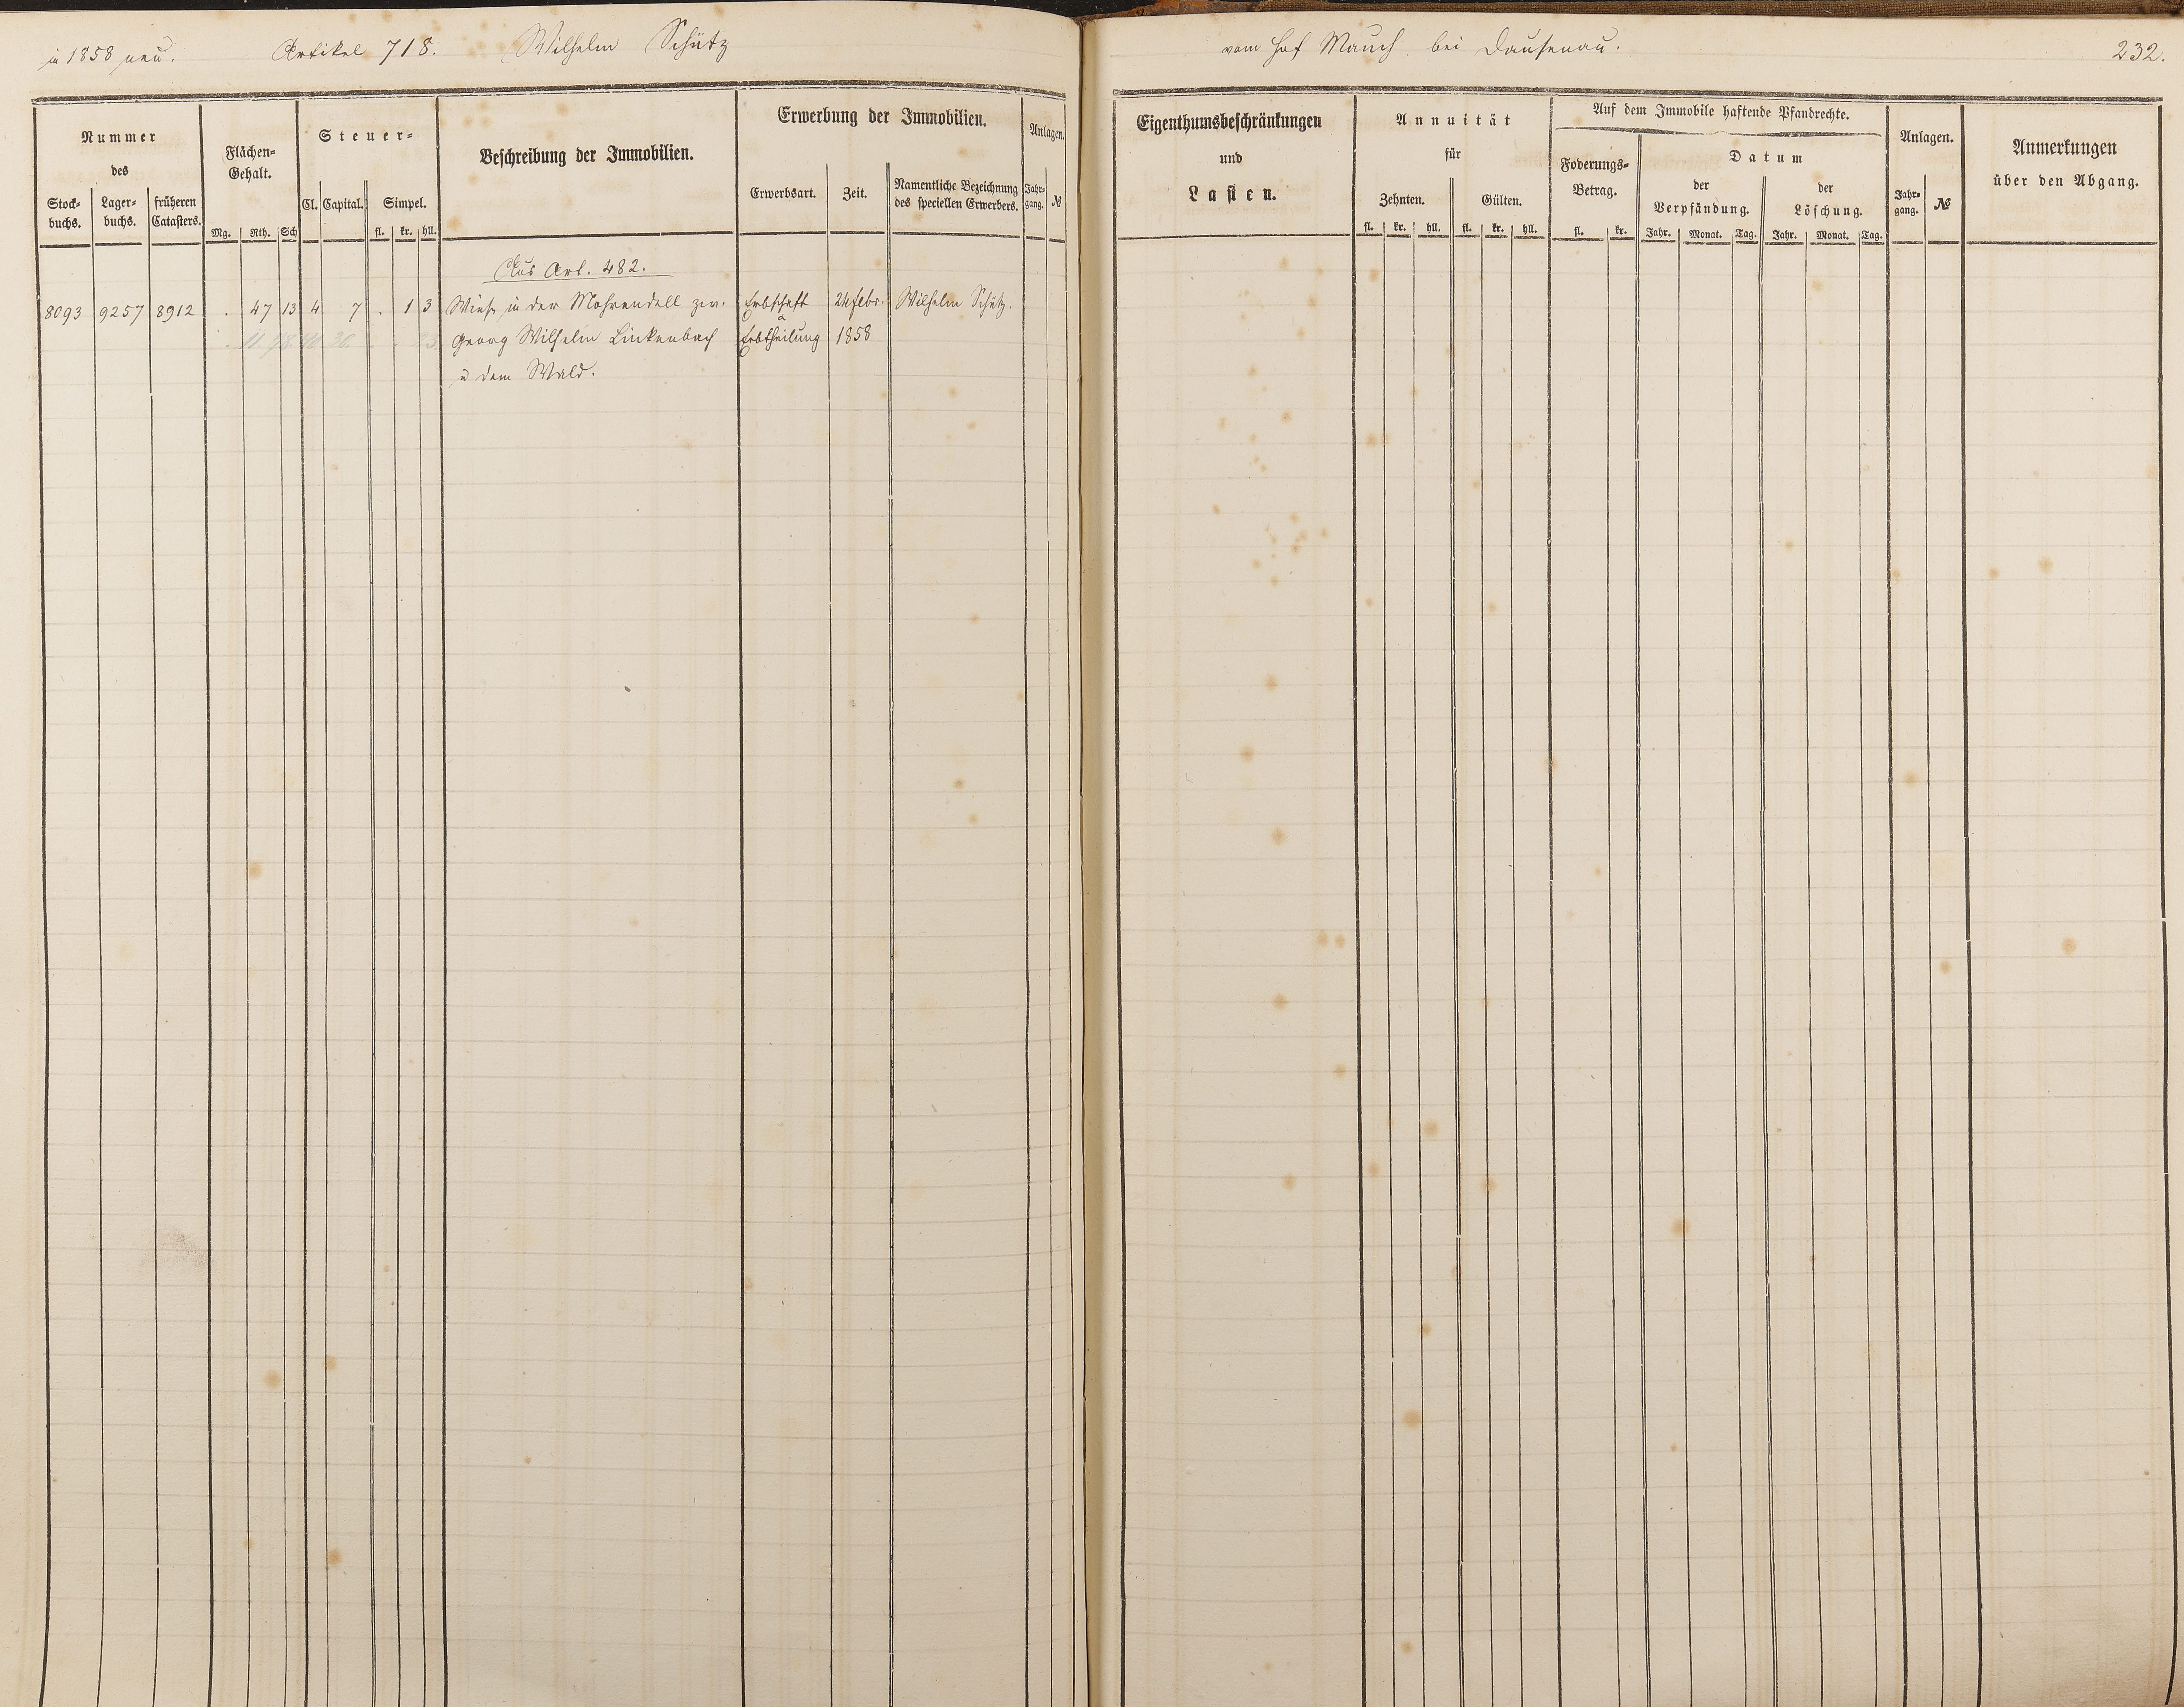 in 1858 neu. Artikel 718. Wilhelm Schütz vom Hof Mauch bei Dausenau. 232.
Nummer
des
Stock-
buchs.
Lager-
buchs.
früheren
Catasters.
Flächen-
Gehalt.
Mg. Rth. Sch
Steuer-
Cl. Capital. Simpel.
fl. kr. hll.
Beschreibung der Immobilien.
Erwerbung der Immobilien.
Erwerbsart. Zeit.
Namentliche Bezeichnung
des speciellen Erwerbers.
Anlagen.
Jahr-
gang. №
Eigenthumsbeschränkungen
und
Lasten.
Annuität
für
Zehnten. Gülten.
fl. kr. hll. fl. kr. hll.
Auf dem Immobile haftende Pfandrechte.
Foderungs-
Betrag.
fl. kr.
Datum
der
Verpfändung.
Jahr. Monat. Tag.
der
Löschung.
Jahr. Monat. Tag.
Anlagen.
Jahr-
gang. №
Anmerkungen
über den Abgang.
Aus Art. 482.
8093 9257 8912 . 47 13 4 7 . 1 3 Wiese in der Mohrendell zw. Erbschaft 24 Febr. Wilhelm Schütz.
Georg Wilhelm Linkenbach Erbtheilung 1858
u dem Wald.